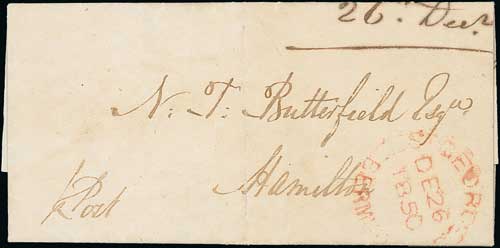 26th Decr
N. T. Butterfield Esqre
Hamilton
p Post
GEORG
DE 26
1850
BERM